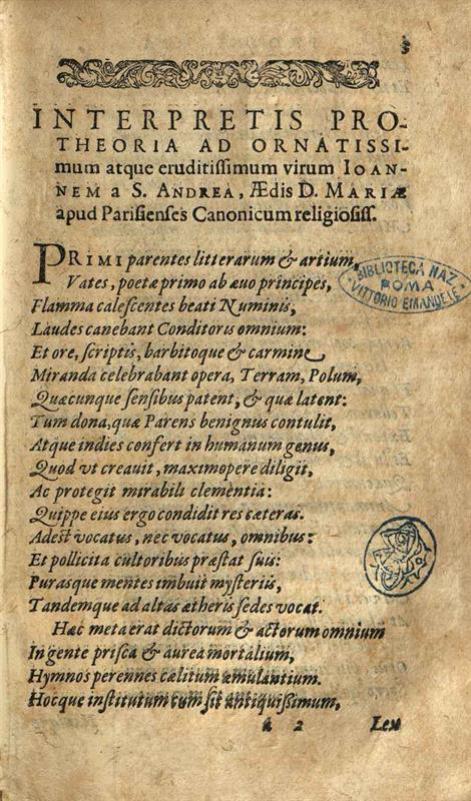 3
INTERPRETIS PRO-
THEORIA AD ORNATISSI-
mum atque eruditiſſimum virum IOAN-
NEM a S. ANDREA, Ædis D. MARIÆ
apud Pariſienſes Canonicum religioſiſſ.
PRIMI parentes litterarum & artium,
Vates, poetæ primo ab æuo principes,
Flamma caleſcentes beati Numinis,
Laudes canebant Conditoris omnium:
Et ore, ſcriptis, barbitoque & carmine
Miranda celebrabant opera, Terram, Polum,
Quæcunque ſenſibus patent, & quæ latent:
Tum dona, quæ Parens benignus contulit,
Atque indies confert in humanum genus,
Quod vt creauit, maximopere diligit,
Ac protegit mirabili clementia:
Quippe eius ergo condidit res cæteras.
Adeſt vocatus, nec vocatus, omnibus:
Et pollicita cultoribus præſtat ſuis:
Puraſque mentes imbuit myſteriis,
Tandemque ad altas ætheris ſedes vocat.
Hæc meta erat dictorum & actorum omnium
In gente priſca & aurea mortalium,
Hymnos perennes cælitum æmulantium.
Hocque inſtitutum cum ſit antiquiſſimum,
a 2
Lex
BIBLIOTECA NAZ.
ROMA
VITTORIO EMANUELE